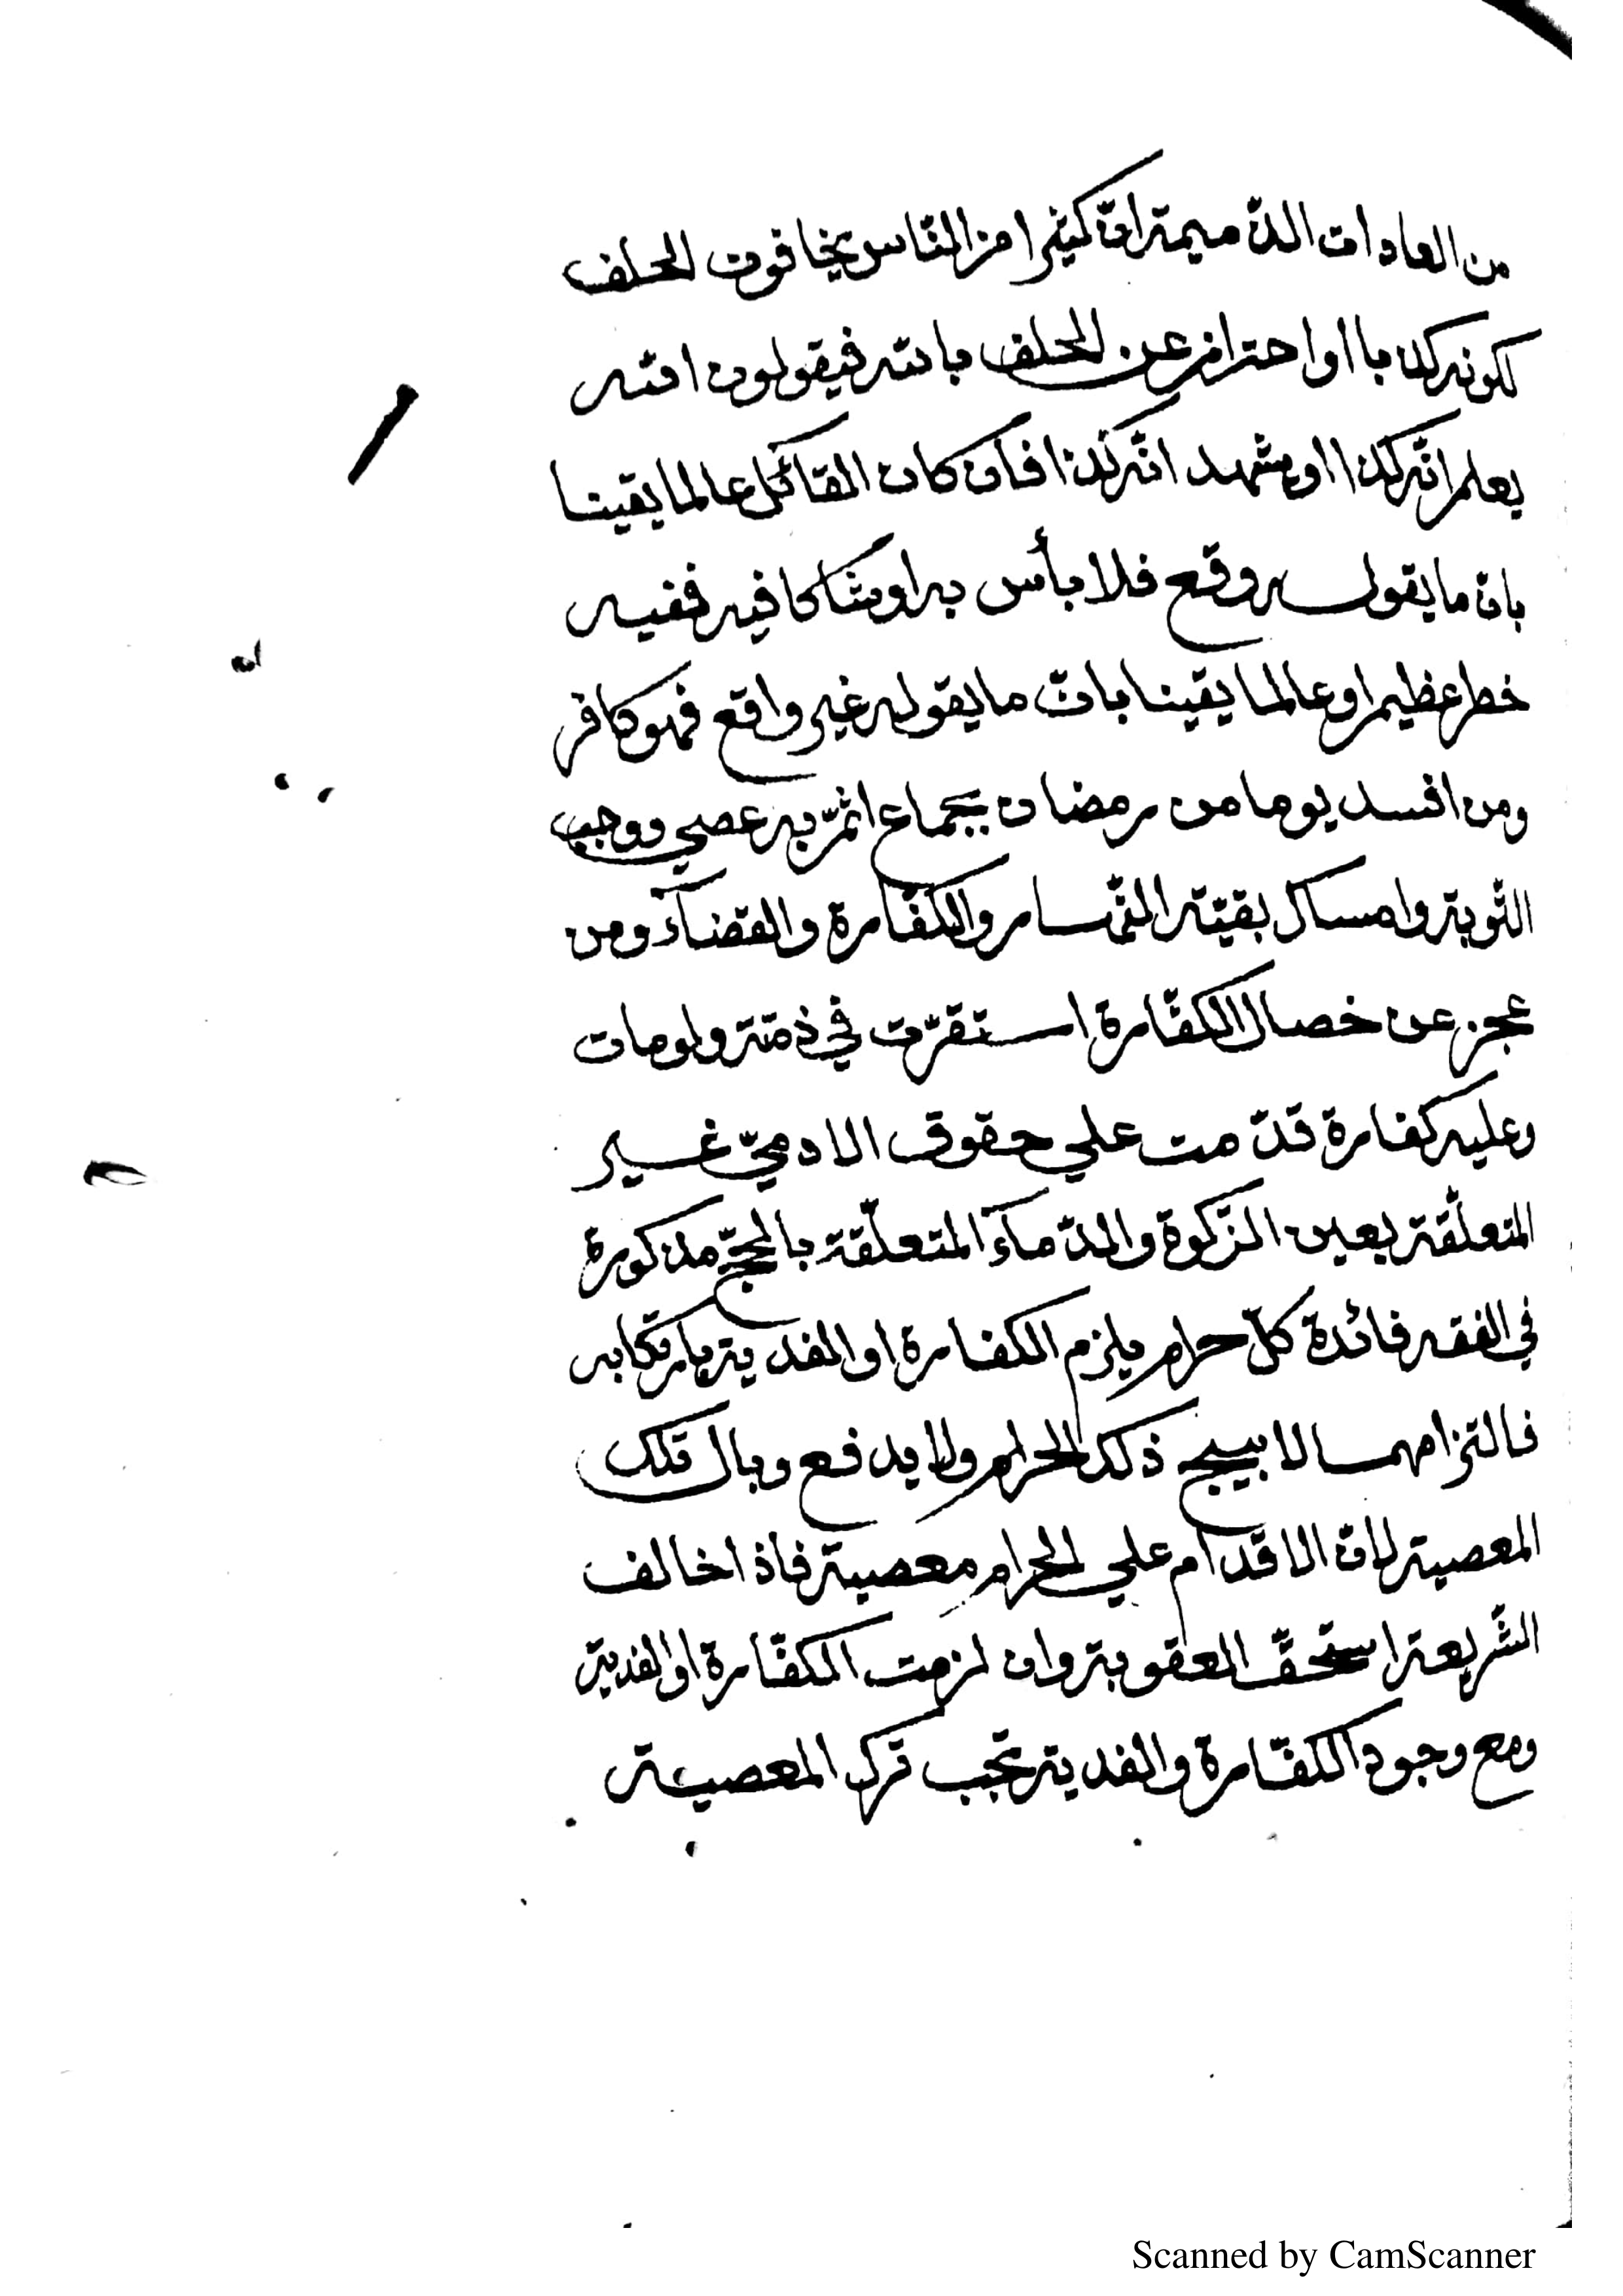 من العادات الذّميمة انّ كثيرا من النّاس يخافون الحلف
لكونه كذبا او احترام عن الحلف بالله فيقولون الله
يعلم انّه كذا او يشهد انّه كذا فان كان القائل عالما يقينا
بان ما يقوله وقع فلا بأس به او شاكا فيه ففيه
خطر عظيم او عالما يقينا بانّ ما يقوله غير واقع فهو كافر
ومن افسد يوما من رمضان بجماع اثمّ به عصي ووجب
التّوبة وامساك بقيّة النّهار والكفّارة والقضآء ومن
عجز عن خصال الكفّارة استقرّت في ذمّته ولومات
وعليه كفارة قدّمت علي حقوق الادميّ غير
المتعلّقة بعين الزّكوة والدّمآء المتعلّقة بالحجّ مذكورة
في الفقه فائدة كلّ حرام يلزم الكفارة او الفدية بارتكابه
فالتزامهما لا يبيح ذلك الحرام ولا يدفع وبال تلك
المعصية لانّ الاقدام علي الحرام معصية فاذا خالف
الشّريعة استحقّ العقوبة وان لزمت الكفّارة او الفدية
ومع وجود الكفّارة والفدية تجب ترك المعصية
Scanned by CamScanner